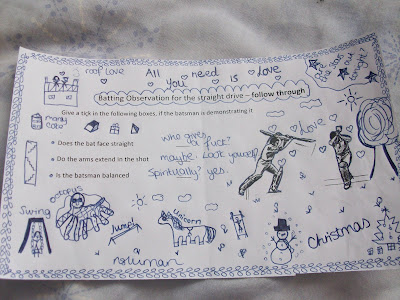 roof Love
All you need is Love
The stars are out tonight
Batting Observation for the straight drive – follow through
Give a tick in the following boxes, if the batsman is demonstrating it
• Does the bat face straight
• Do the arms extend in the shot
• Is the batsman balanced
who gives a fuck?
maybe. Look yourself
Spiritually? yes.
Love
octopus
Swing
jump!
Unicorn
Christmas